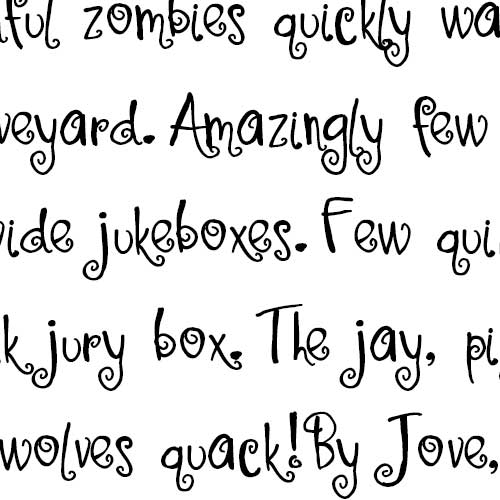 ful zombies quickly wa
veyard. Amazingly few
wide jukeboxes. Few qui
k jury box. The jay, pi
wolves quack! By Jove,